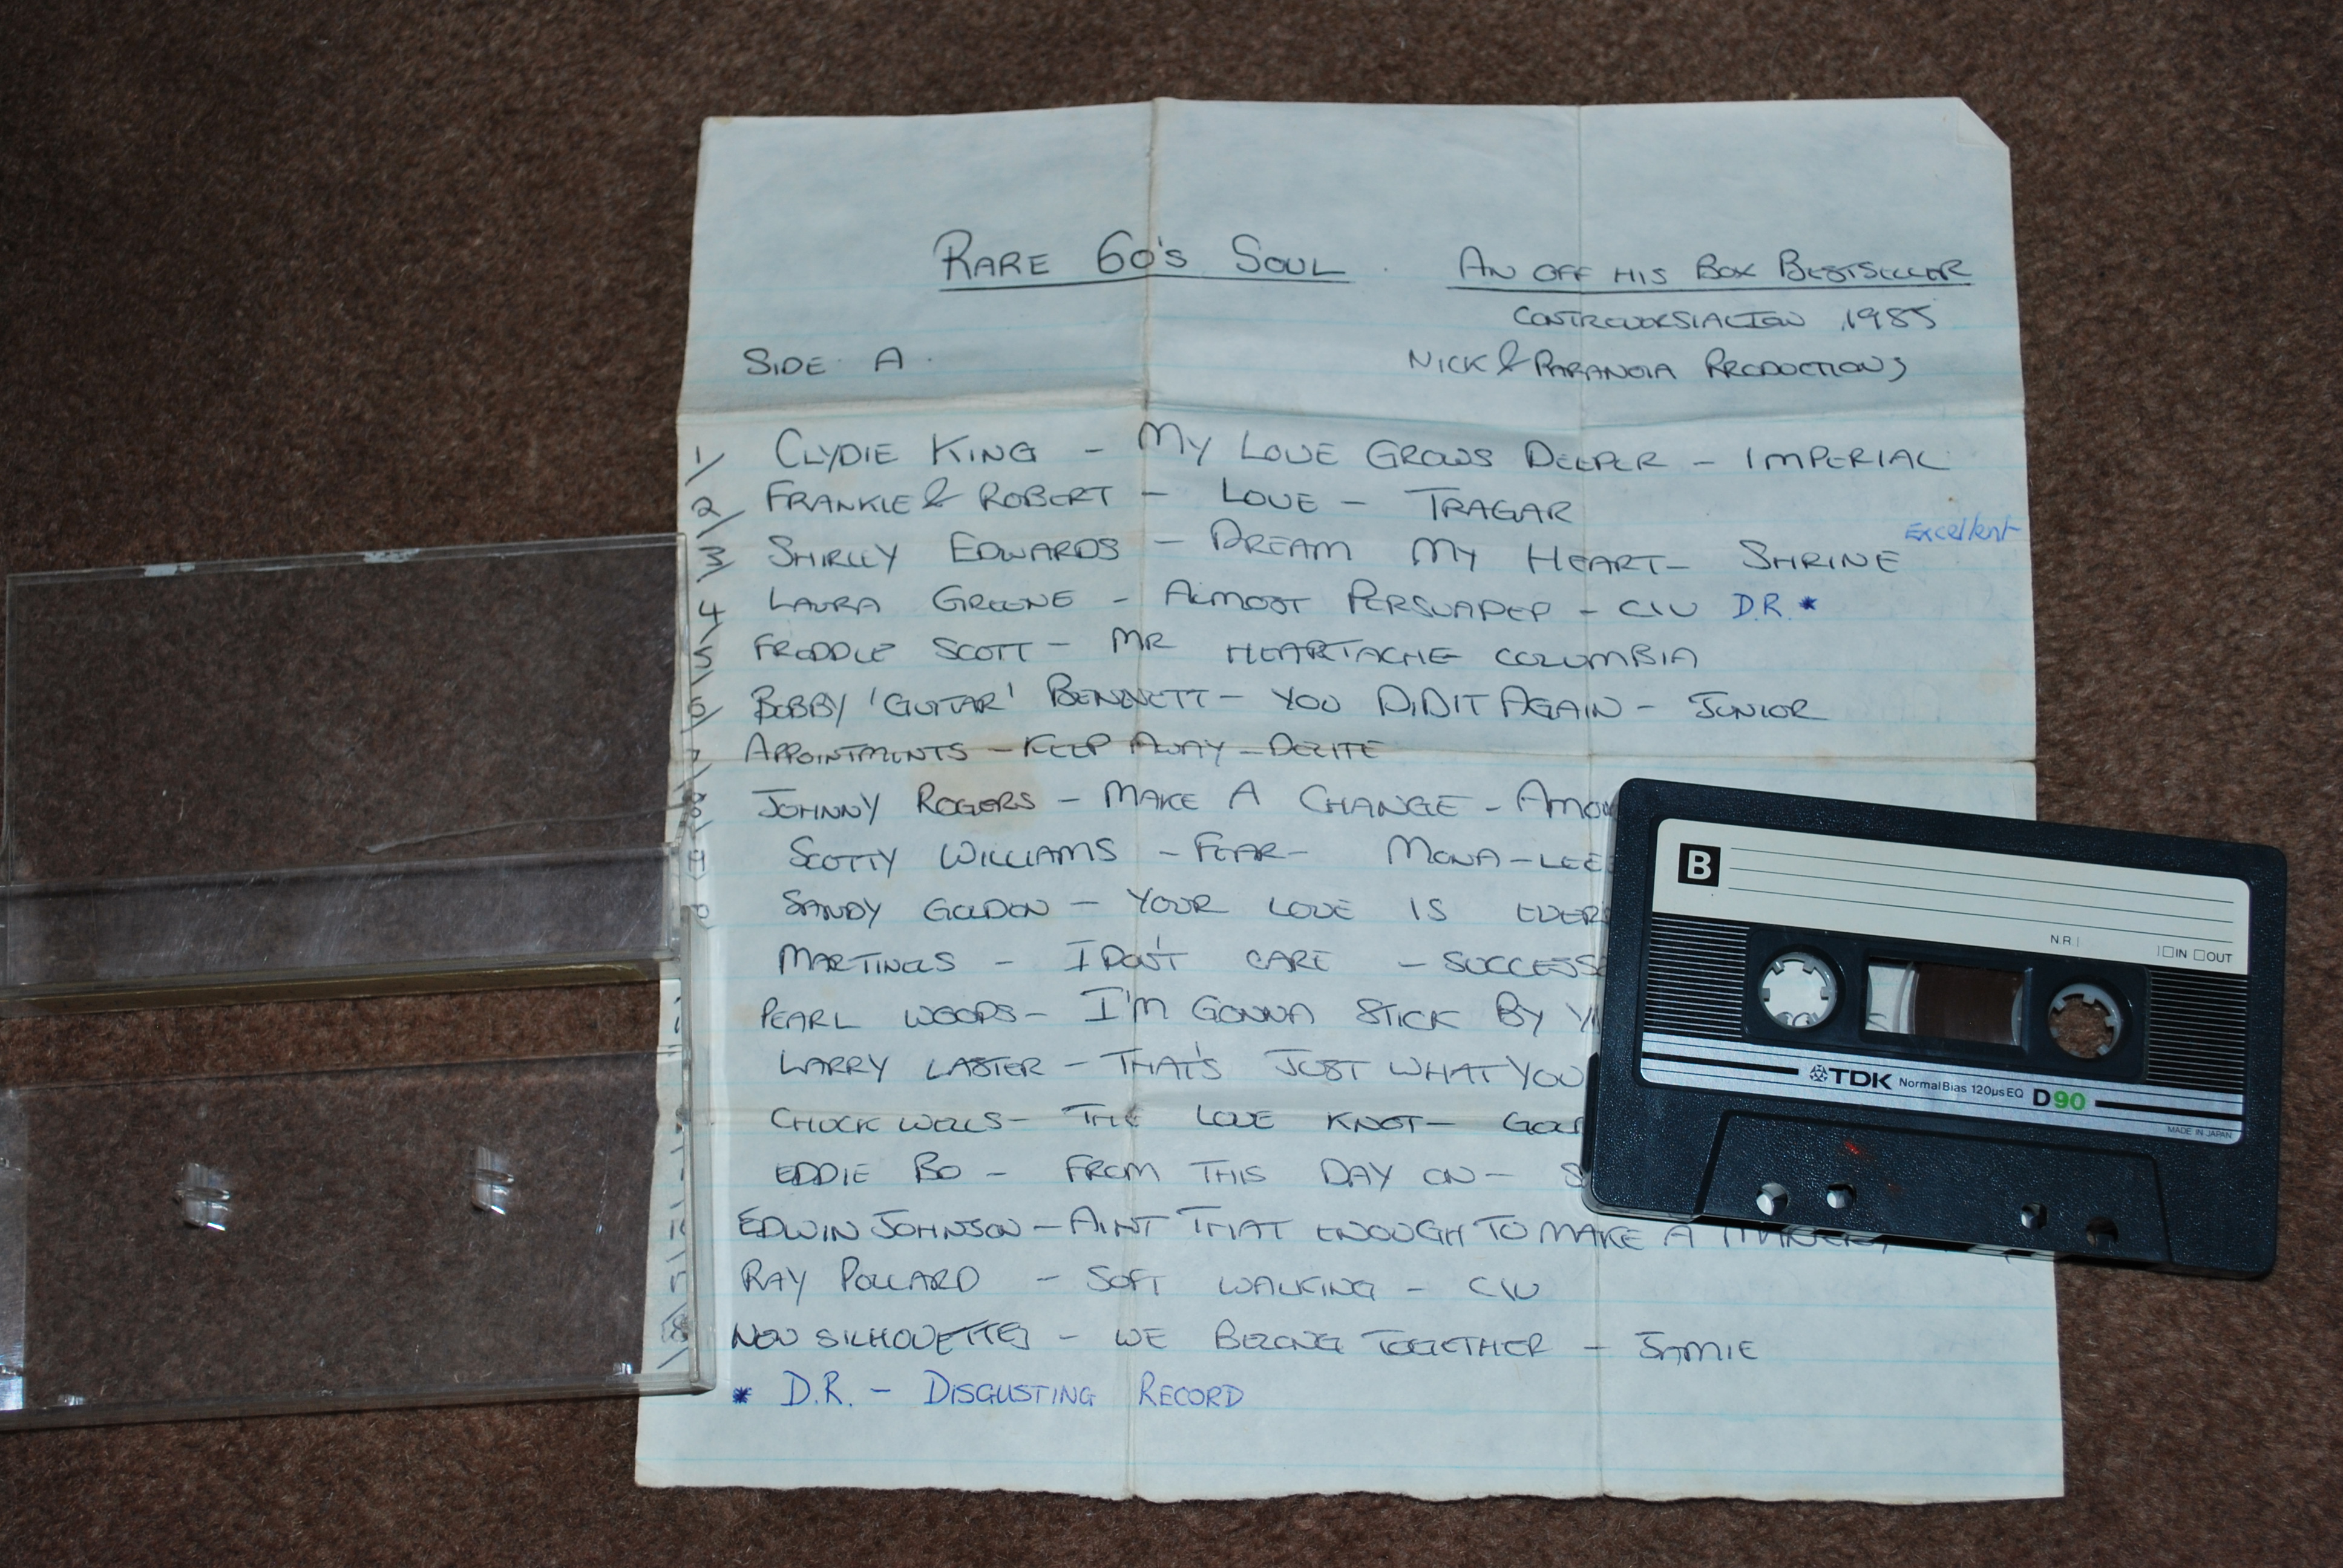 RARE 60'S SOUL . AN OFF HIS BOX BESTSELLER
1985
SIDE A.
NICK & PARANOIA PRODUCTIONS
1/ CLYDIE KING - MY LOVE GROWS DEEPER - IMPERIAL
2/ FRANKIE & ROBERT - LOVE - TRAGAR
Excellent
3/ SHIRLEY EDWARDS - DREAM MY HEART - SHRINE
4/ LAURA GREENE - ALMOST PERSUADED - CIU D.R. *
5/ FREDDIE SCOTT - MR HEARTACHE COLUMBIA
6/ BOBBY 'GUITAR' BENNETT - YOU DID IT AGAIN - JUNIOR
7/ APPOINTMENTS - KEEP AWAY - DELITE
8/ JOHNNY ROGERS - MAKE A CHANGE - AMO
9/ SCOTTY WILLIAMS - FEAR - MONA-LEE
SANDY GOLDEN - YOUR LOVE IS EVER
MARTINELS - I DON'T CARE - SUCCESS
PEARL WOODS - I'M GONNA STICK BY Y
LARRY LASTER - THAT'S JUST WHAT YOU
CHUCK WELLS - THE LOVE KNOT -
EDDIE BO - FROM THIS DAY ON - S
EDWIN JOHNSON - AINT THAT ENOUGH TO MAKE A
RAY POLLARD - SOFT WALKING - CIU
NEW SILHOUETTES - WE BELONG TOGETHER - JAMIE
* D.R. - DISGUSTING RECORD
B
N.R. IN OUT
TDK Normal Bias 120µs EQ D90
MADE IN JAPAN